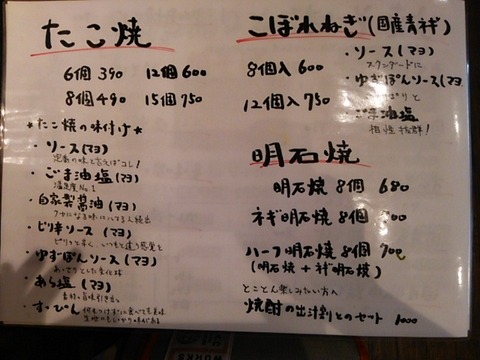 たこ焼
6個 390 12個 600
8個 490 15個 750
★たこ焼の味付け★
・ソース(マヨ)
定番の味と言えばコレ!
・ごま油塩(マヨ)
満足度No.1
・自家製醤油(マヨ)
クセになる味にハマる人続出
・ピリ辛ソース(マヨ)
・ゆずぽんソース(マヨ)
あっさりとした変化球
・あら塩(マヨ)
素材の旨味引き出す
・すっぴん
こぼれねぎ(国産青ネギ)
8個入 600
12個入 750
・ソース(マヨ)
スタンダードに
・ゆずぽんソース(マヨ
・ごま油塩
相性抜群!
明石焼
明石焼 8個 680
ネギ明石焼 8個
ハーフ明石焼 8個 700
(明石焼+ネギ明石焼)
とことん楽しみたい方へ
焼酎の出汁割とのセット 1000